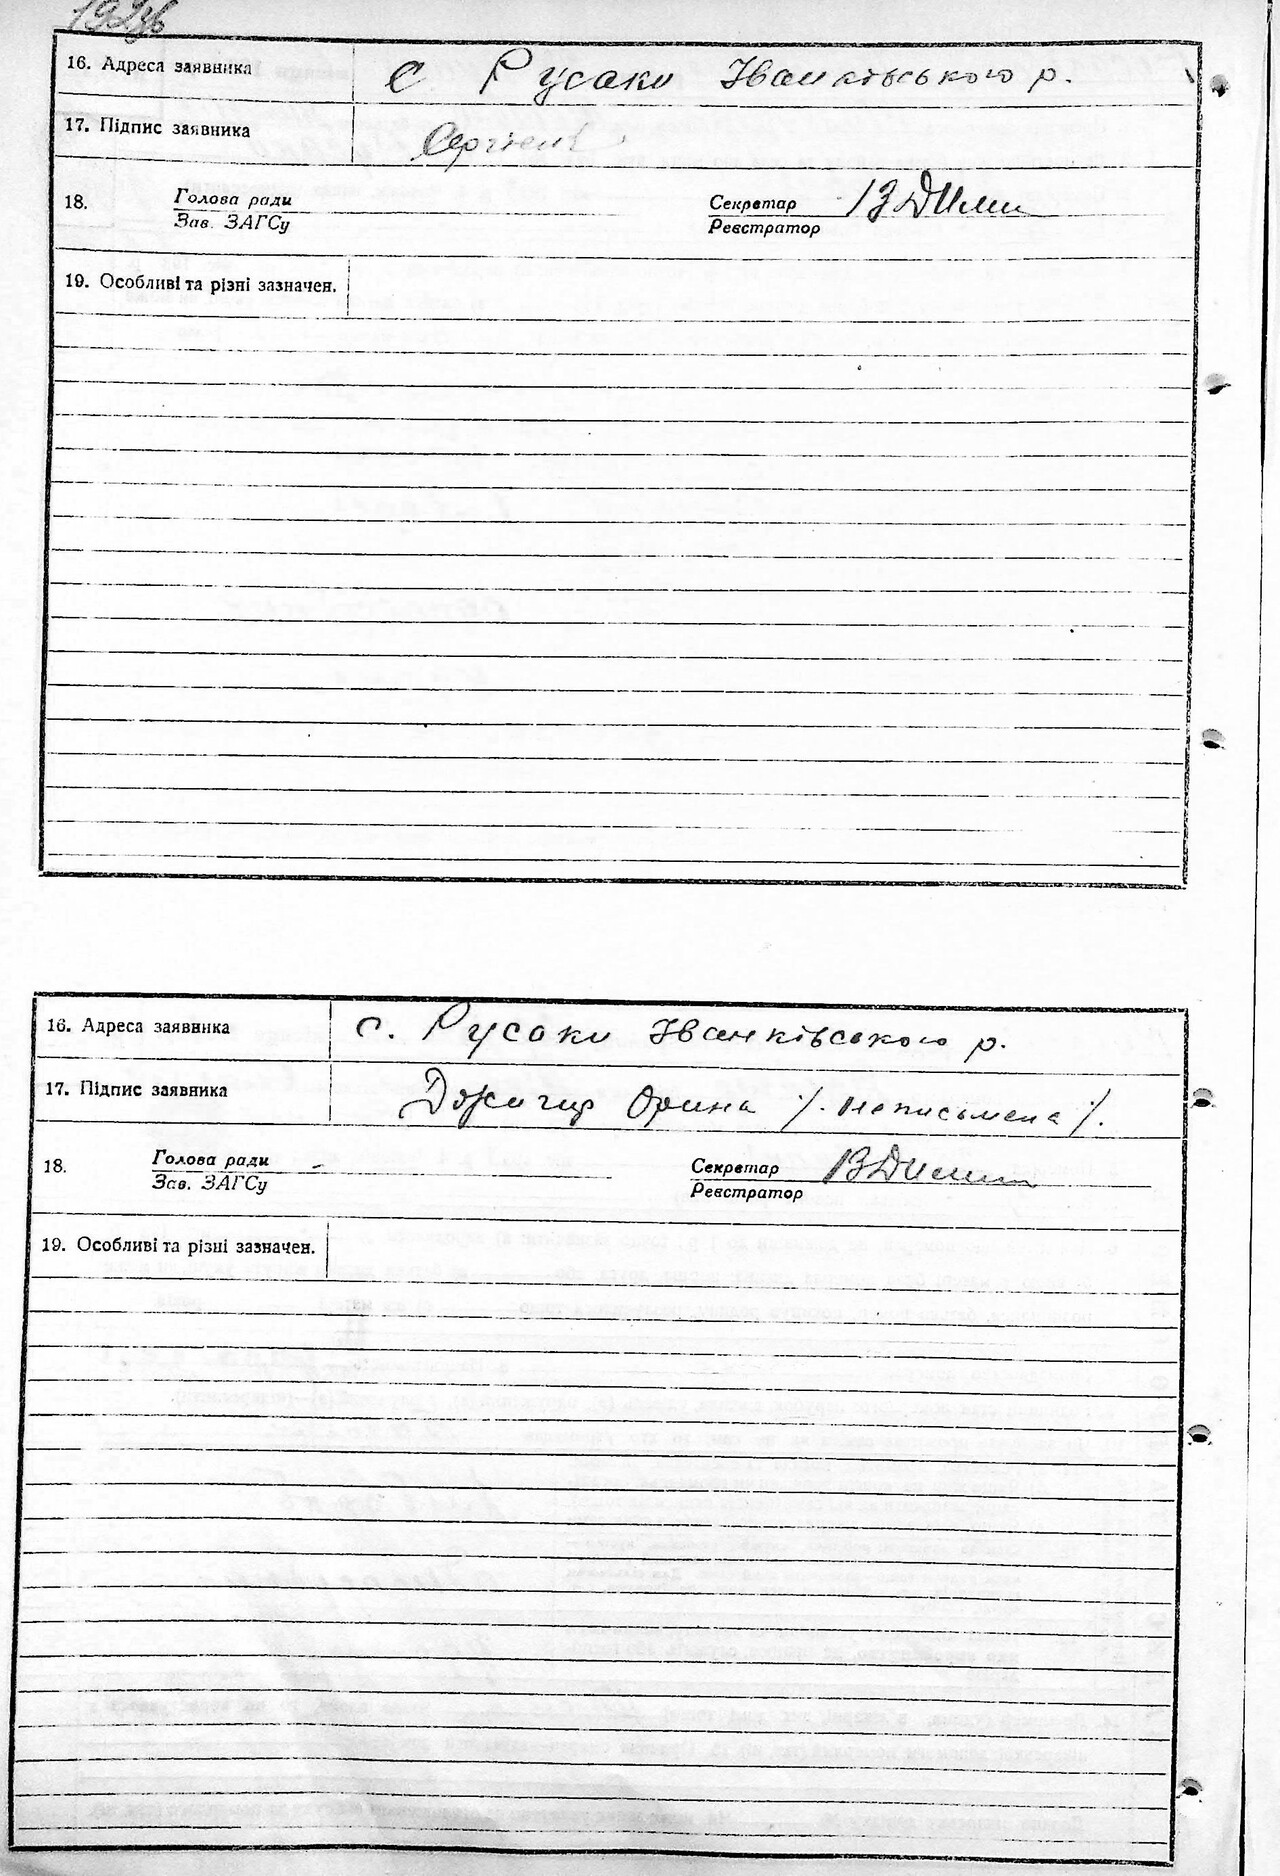 16. Адреса заявника с Русаки Іванківського р.
17. Підпис заявника
18. Голова ради Секретар
Зав. ЗАГСу Реєстратор
19. Особливі та різні зазначен.
16. Адреса заявника с. Русаки Іванківського р.
17. Підпис заявника Орина /. неписьмена /.
18. Голова ради - Секретар
Зав. ЗАГСу Реєстратор
19. Особливі та різні зазначен.